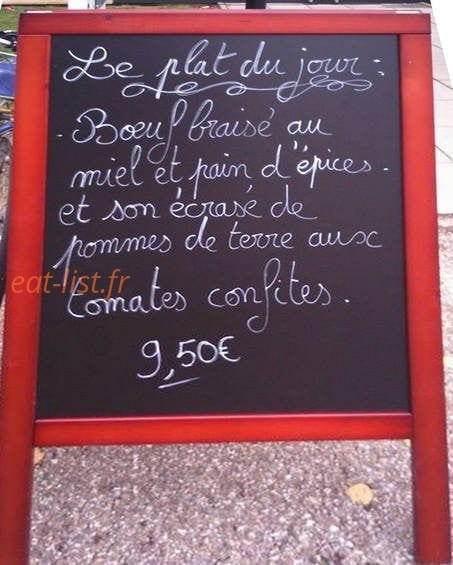 Le plat du jour :
- Bœuf braisé au
miel et pain d'épices.
et son écrasé de
pommes de terre aux
tomates confites.
9,50€
eat-list.fr